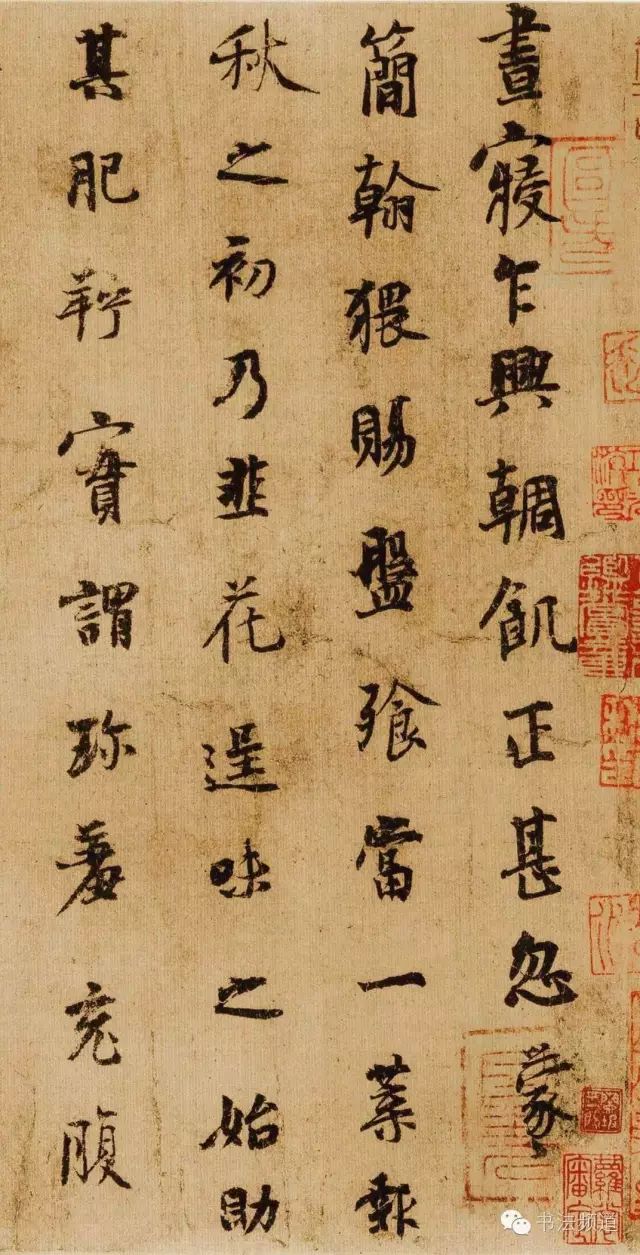 晝寢乍興輖飢正甚忽蒙
簡翰猥賜盤飧當一葉報
秋之初乃韭花逞味之始助
其肥羜實謂珍羞充腹
书法频道